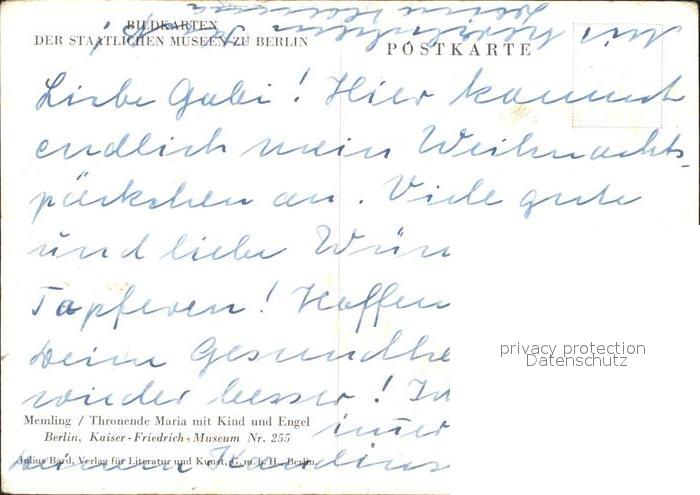 BILDKARTEN
DER STAATLICHEN MUSEEN ZU BERLIN
POSTKARTE
Liebe Gabi! Hier kommt
endlich mein Weihnachts-
päckchen an. Viele gute
und liebe Wün
Tapferen! Hoffen
Deine Gesundhe
wieder besser! In
Memling / Thronende Maria mit Kind und Engel
immer
Berlin, Kaiser-Friedrich-Museum Nr. 255
Julius Bard, Verlag für Literatur und Kunst, G. m. b. H., Berlin
privacy protection
Datenschutz